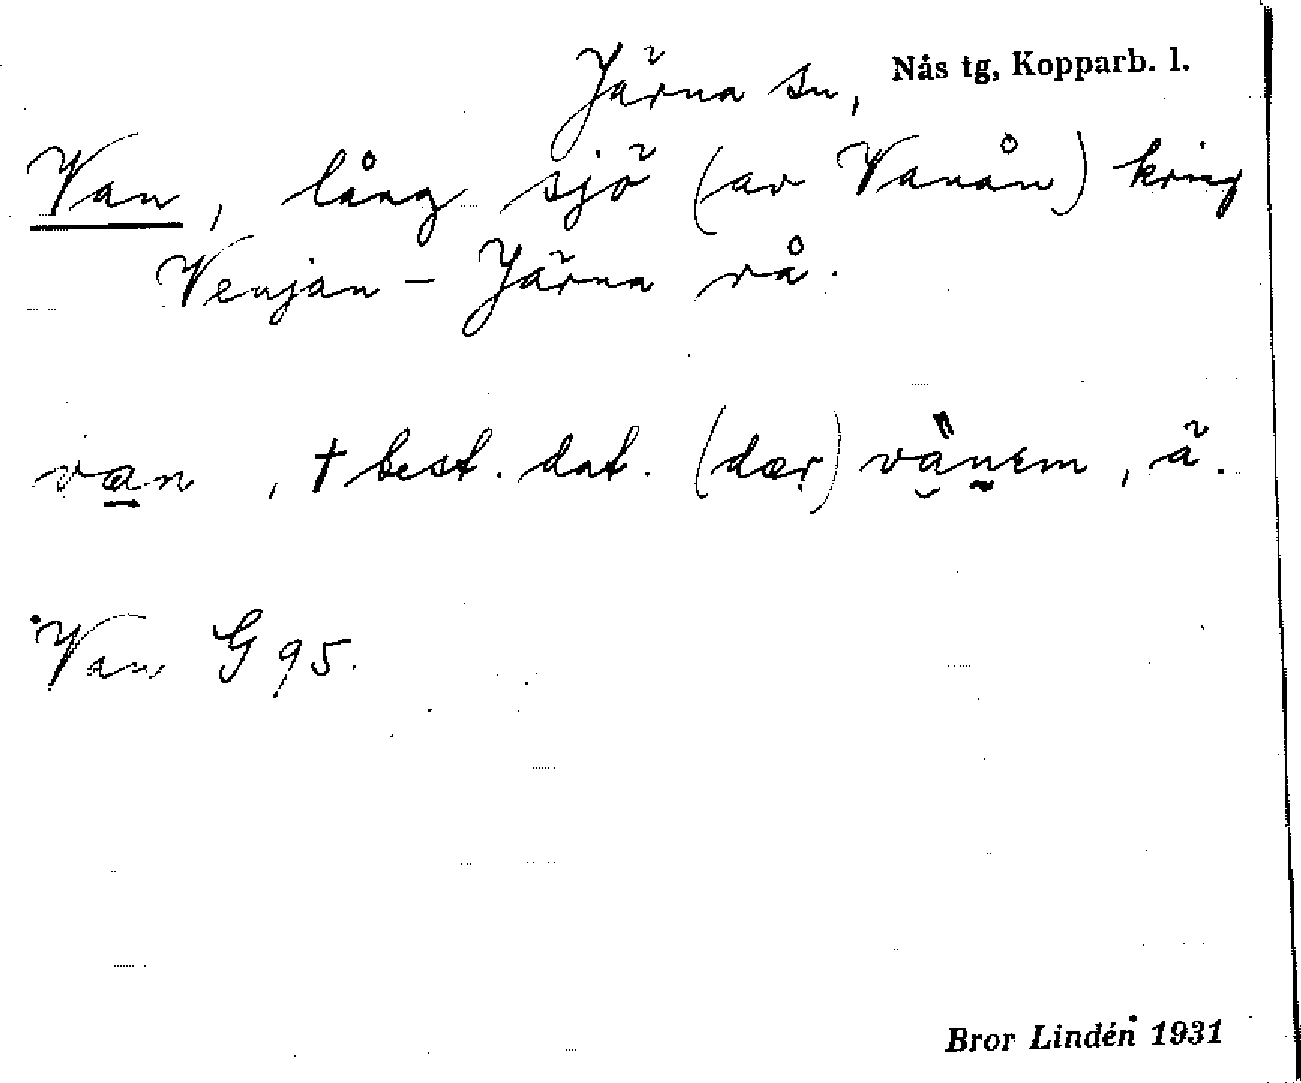 Järna sn, Nås tg, Kopparb. l.
Van, lång sjö (av Vanån) kring
Venjan - Järna rå.
van, † best. dat. (dær) vänem, ä.
Van G 95.
Bror Lindén 1931